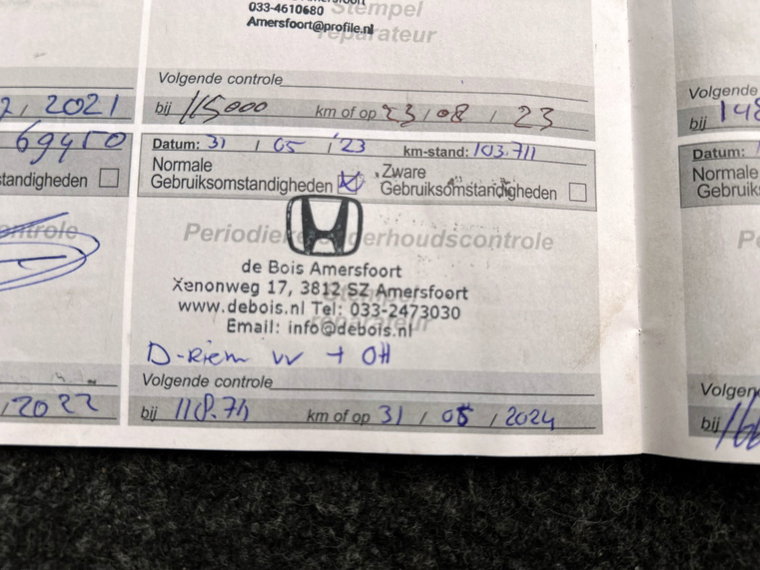 033-4610680
Stempel
Amersfoort@profile.nl
reparateur
Volgende controle
bij 115000 km of op 23/08/23
2021
69450
standigheden
2022
Datum: 31/05/'23 km-stand: 103.711
Normale
Gebruiksomstandigheden
Zware
Gebruiksomstandigheden
Periodieke onderhoudscontrole
de Bois Amersfoort
Xenonweg 17, 3812 SZ Amersfoort
www.debois.nl Tel: 033-2473030
Stempel
Email: info@debois.nl
reparateur
D-Riem vv + OH
Volgende controle
bij 118.711 km of op 31/05/2024
Volgende
bij 148
Datum:
Normale
Gebruiks
Volgen
bij